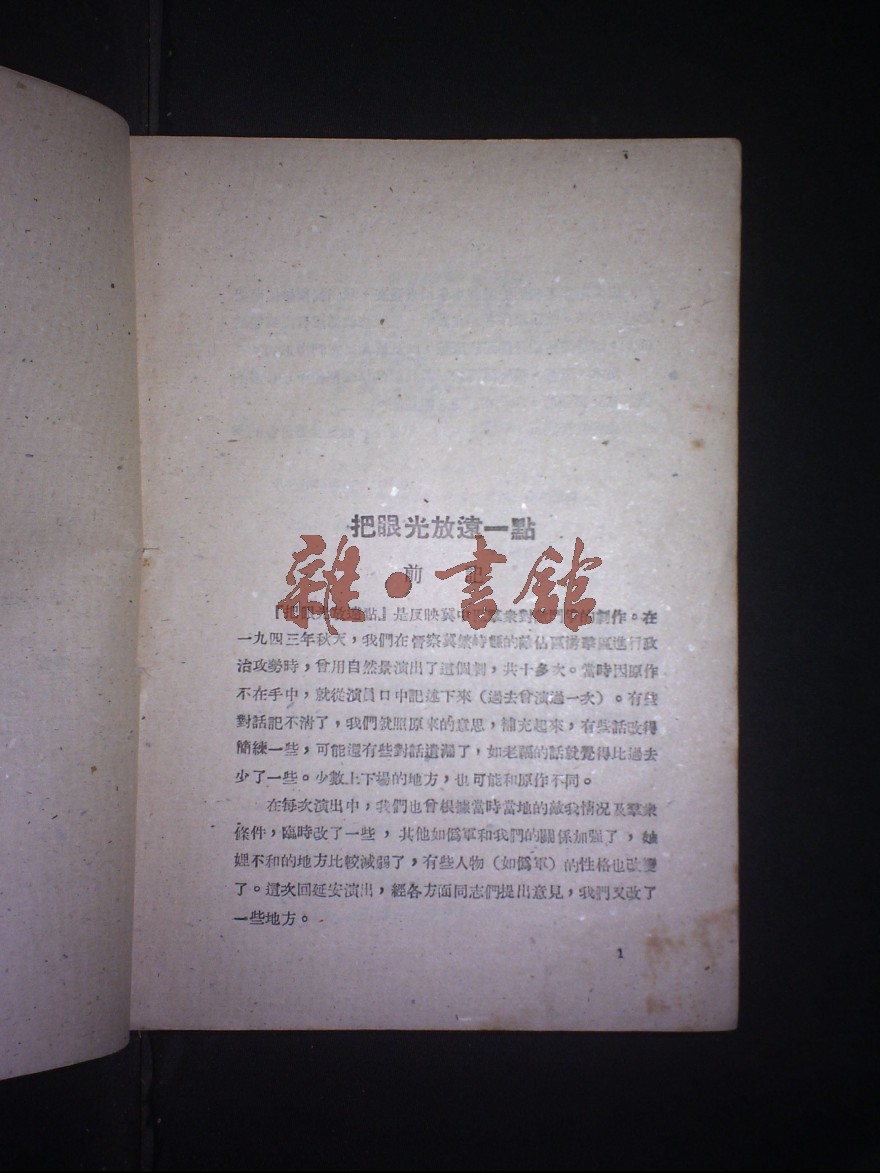 把眼光放遠一點
前記
雜·書館
『把眼光放遠點』是反映冀中羣衆對敵鬥爭的劇作。在
一九四三年秋天,我們在晉察冀繁峙縣的敵佔區游擊區進行政
治攻勢時,曾用自然景演出了這個劇,共十多次。當時因原作
不在手中,就從演員口中記述下來(過去曾演過一次)。有些
對話記不清了,我們就照原來的意思,補充起來,有些話改得
簡練一些,可能還有些對話遺漏了,如老的話就覺得比過去
少了一些。少數上下場的地方,也可能和原作不同。
在每次演出中,我們也曾根據當時當地的敵我情況及羣衆
條件,臨時改了一些,其他如僞軍和我們的關係加强了,妯
娌不和的地方比較減弱了,有些人物(如僞軍)的性格也改變
了。這次回延安演出,經各方面同志們提出意見,我們又改了
一些地方。
1